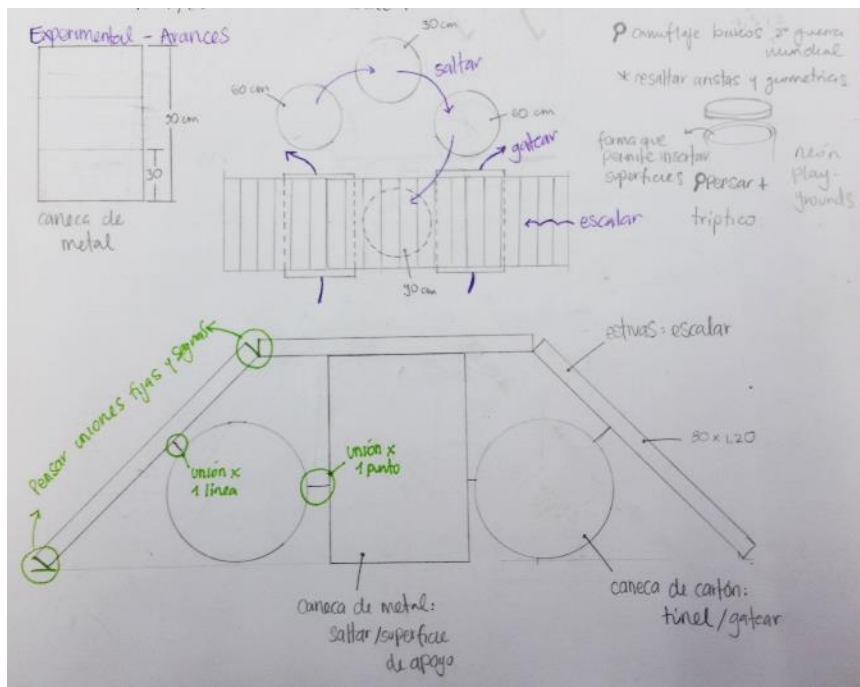 Experimental - Avances
90 cm
30
caneca de
metal
30cm
60 cm
60 cm
saltar
gatear
escalar
90 cm
camuflaje barcos 2ª guerra
mundial
* resaltar aristas y geometrías
forma que
permite insertar
superficies
Pensar +
tríptico
neón
play-
grounds
Pensar uniones fijas y seguras
unión x
1 línea
unión x
1 punto
estivas: escalar
80 x 1.20
caneca de metal:
saltar/superficie
de apoyo
caneca de cartón:
túnel/gatear